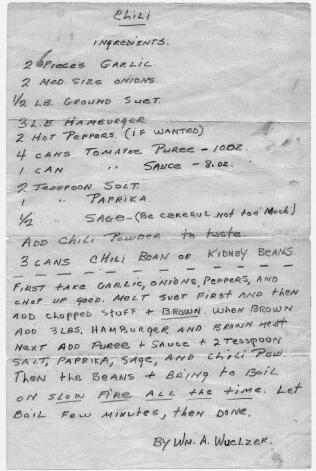 CHILI
INGREDIENTS.
2 PIECES GARLIC
2 MED. SIZE ONIONS.
1/2 LB. GROUND SUET.
3 LB HAMBURGER
2 HOT PEPPERS. (IF WANTED)
4 CANS TOMATOE PUREE - 10 OZ.
1 CAN " SAUCE - 8 OZ.
2 TEESPOON SALT.
1 " PAPRIKA.
1/2 SAGE - (BE CAREFUL NOT TOO MUCH)
ADD CHILI POWDER TO TASTE.
3 CANS CHILI BEAN OR KIDNEY BEANS.
FIRST TAKE GARLIC, ONIONS, PEPPERS, AND
CHOP UP GOOD. MELT SUET FIRST AND THEN
ADD CHOPPED STUFF + BROWN. WHEN BROWN
ADD 3 LBS. HAMBURGER AND BROWN MEAT
NEXT ADD PUREE + SAUCE + 2 TEESPOON
SALT, PAPRIKA, SAGE, AND CHILI POW.
THEN THE BEANS + BEING TO BOIL
ON SLOW FIRE ALL THE TIME. LET
BOIL FEW MINUTES, THEN DONE.
BY WM. A. WUELZER.